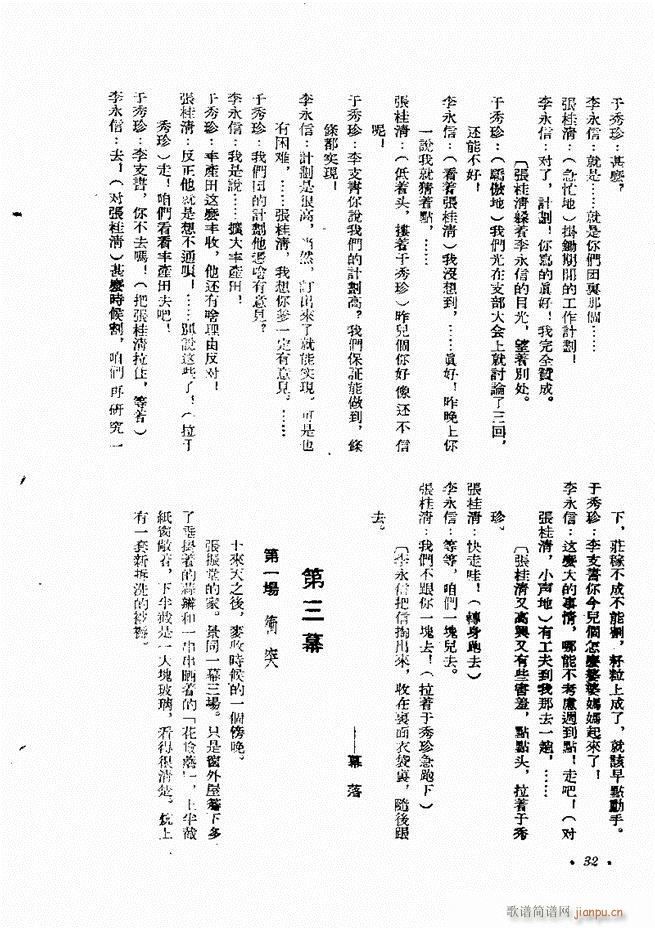 于秀珍：甚麽，
李永信：就是……就是你們团裏那個……
張桂清：（急忙地）掛鋤期間的工作計劃！
李永信：对了，計劃！你寫的眞好！我完全贊成。
〔張桂清躱着李永信的目光，望着別处。
于秀珍：（驕傲地）我們光在支部大会上就討論了三回，
还能不好！
李永信：（看着張桂清）我沒想到，……眞好！昨晚上你
一說我就猜着點，……
張桂清：（低着头，摟着于秀珍）昨兒個你好像还不信
呢！
于秀珍：李支書你說我們的計劃高？我們保証能做到，條
條都实現！
李永信：計劃是很高，当然，訂出來了就能实現。可是也
有困难，……張桂清，我想你爹一定有意見。……
于秀珍：我們团的計劃他憑啥有意見？
李永信：我是說……擴大丰產田！
于秀珍：丰產田这麽丰收，他还有啥理由反对！
張桂清：反正他就是想不通唄！……別說这些了！（拉于
秀珍）走！咱們看看丰產田去吧！
于秀珍：李支書，你不去嗎！（把張桂清拉住，等着）
李永信：去！（对張桂清）甚麽時候割，咱們再研究一
下，莊稼不成不能割，籽粒上成了，就該早點動手。
于秀珍：李支書你今兒個怎麽婆婆媽媽起來了！
李永信：这麽大的事情，哪能不考慮週到點！走吧！（对
張桂清，小声地）有工夫到我那去一趟，……
〔張桂清又高興又有些害羞，點點头，拉着于秀
珍。
張桂清：快走哇！（轉身跑去）
李永信：等等，咱們一塊兒去。
張桂清：我們不跟你一塊去！（拉着于秀珍急跑下）
〔李永信把信掏出來，收在裏面衣袋裏，隨後跟
去。
——幕落
第三幕
第一場 衝突
十來天之後，麥收時候的一個傍晚。
張振堂的家。景同一幕三場。只是窗外屋簷下多
了垂掛着的蒜辮和一串串晒着的「花
紙窗敞着，下半截是一大塊玻璃，看得很清楚。炕上
有一套新拆洗的被褥。
·32·
歌谱简谱网
jianpu.cn